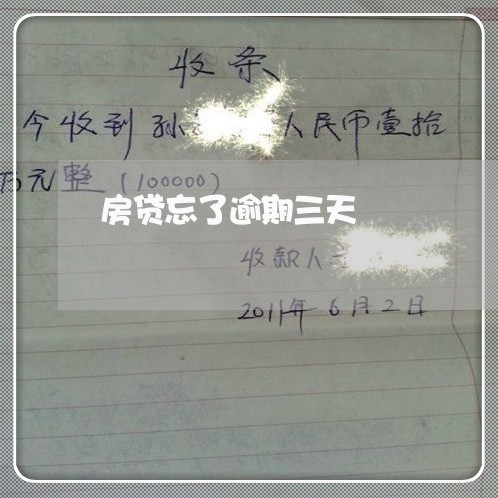 收条
今收到孙 人民币壹拾
万元整（100000）
房贷忘了逾期三天
收款人
2011年6月2日